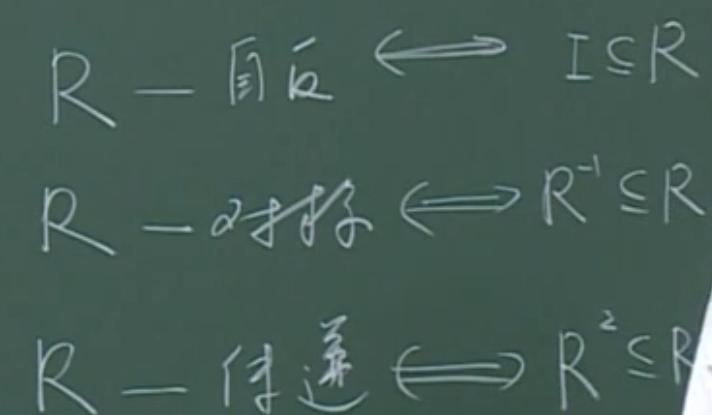 R — 自反 ⟺ I ⊆ R
R — 对称 ⟺ R⁻¹ ⊆ R
R — 传递 ⟺ R² ⊆ R